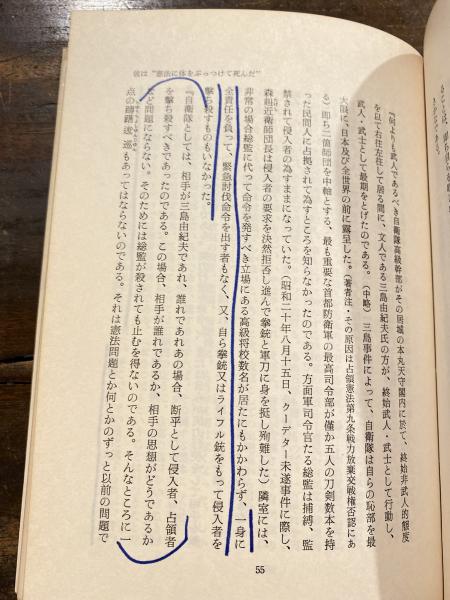 彼は〝憲法に体をぶっつけて死んだ〟
『何よりも武人であるべき自衛隊高級幹部がその居城の本丸天守閣内に於て、終始非武人的態度
を以て右往左往して居る間に、文人である三島由紀夫氏の方が、終始武人・武士として行動し、
武人・武士として最期をとげたのである。（中略）三島事件によって、自衛隊は自らの恥部を最
大限に、日本及び全世界の前に露呈した。（著者注・その原因は占領憲法第九条戦力放棄交戦権否認にあ
る）即ち二箇師団を中軸とする、最も重要な首都防衛軍の最高司令部が僅か五人の刀剣数本を持
った民間人に占拠されて為すところを知らなかったのである。方面軍司令官たる総監は捕縛、監
禁されて侵入者の為すままになっていた。（昭和二十年八月十五日、クーデター未遂事件に際し、
森赳近衛師団長は侵入者の要求を決然拒否し進んで拳銃と軍刀に身を挺し殉難した）隣室には、
非常の場合総監に代って命令を発すべき立場にある高級将校数名が居たにもかかわらず、一身に
全責任を負って、緊急討伐命令を出す者もなく、又、自ら拳銃又はライフル銃をもって侵入者を
撃ち殺すものもいなかった。
『自衛隊としては、相手が三島由紀夫であれ、誰れであれあの場合、断乎として侵入者、占領者
を撃ち殺すべきであったのである。この場合、相手が誰れであるか、相手の思想がどうであるか
など問題にならない。そのためには総監が殺されても止むを得ないのである。そんなところに一
点の躊躇逡巡もあってはならないのである。それは憲法問題とか何とかのずっと以前の問題で
55